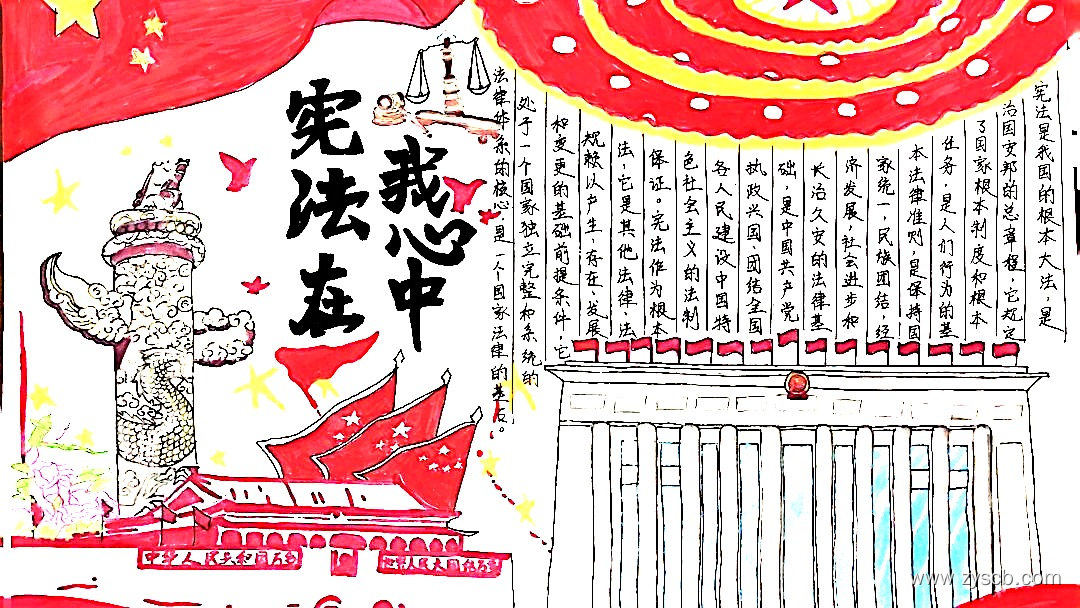 宪法在
我心中
宪法是我国的根本大法，是
治国安邦的总章程，它规定
了国家根本制度和根本
任务，是人们行为的基
本法律准则，是保持国
家统一，民族团结，经
济发展，社会进步和
长治久安的法律基
础，是中国共产党
执政兴国、团结全国
各人民建设中国特
色社会主义的法制
保证。宪法作为根本
法，它是其他法律、法
规赖以产生、存在、发展
和变更的基础前提条件，它
处于一个国家独立完整和系统的
法律体系的核心，是一个国家法律的基石。
中华人民共和国万岁
世界人民大团结万岁
www.zyscb.com